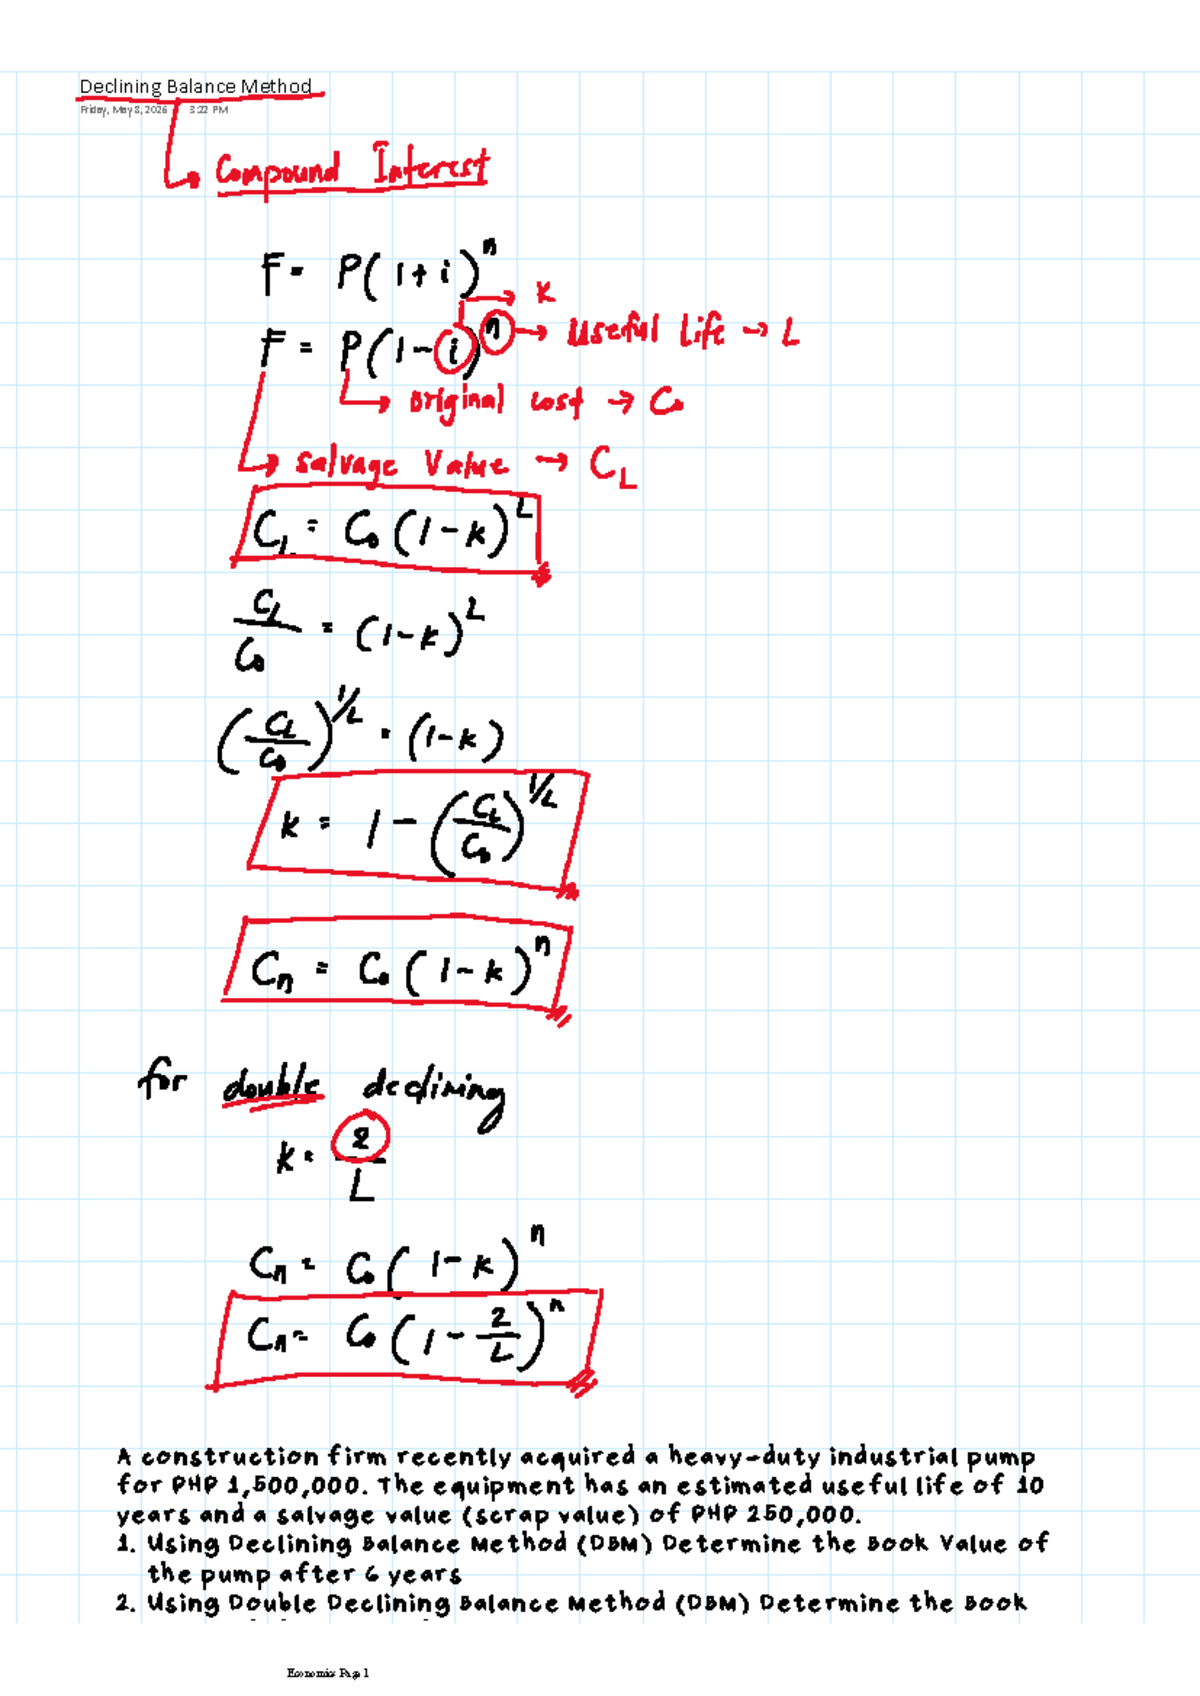 Declining Balance Method
Friday, May 8, 2026 3:22 PM
Compound Interest
F = P(1+i)^n
k
F = P(1-i)^n → useful life → L
original cost → C₀
salvage value → C_L
C_L = C₀(1-k)^L
C_L/C₀ = (1-k)^L
(C_L/C₀)^1/L = (1-k)
k = 1-(C_L/C₀)^1/L
C_n = C₀(1-k)^n
for double declining
k = 2/L
C_n = C₀(1-k)^n
C_n = C₀(1-2/L)^n
A construction firm recently acquired a heavy-duty industrial pump
for PHP 1,500,000. The equipment has an estimated useful life of 10
years and a salvage value (scrap value) of PHP 250,000.
1. Using Declining Balance Method (DBM) Determine the Book Value of
the pump after 6 years
2. Using Double Declining Balance Method (DBM) Determine the Book
Economics Page 1